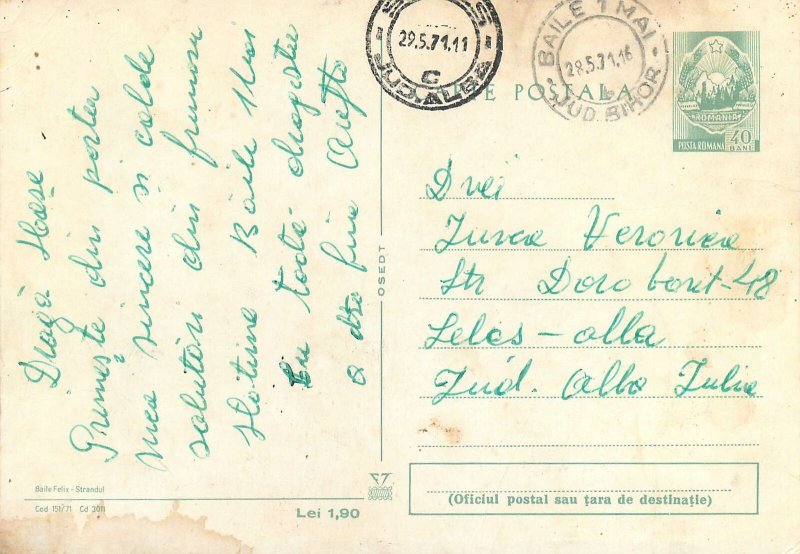 SEBES
29.5.71.11
C
JUD. ALBA
BAILE 1 MAI
28.5.71.16
b
JUD. BIHOR
CARTE POSTALA
ROMANIA
POSTA ROMANA 40 BANI
Dragă
Primește din partea
mea sincere și calde
salutări din frumoasa
Băile 1 Mai
Cu toată dragostea
a dtra fină
Baile Felix - Strandul
Cod 151/71 Cd 3011
Lei 1,90
OSEDT
Drei
Jurca Veronica
Str Dorobant-48
Sebes-alba
Jud. Alba Iulia
(Oficiul postal sau țara de destinație)